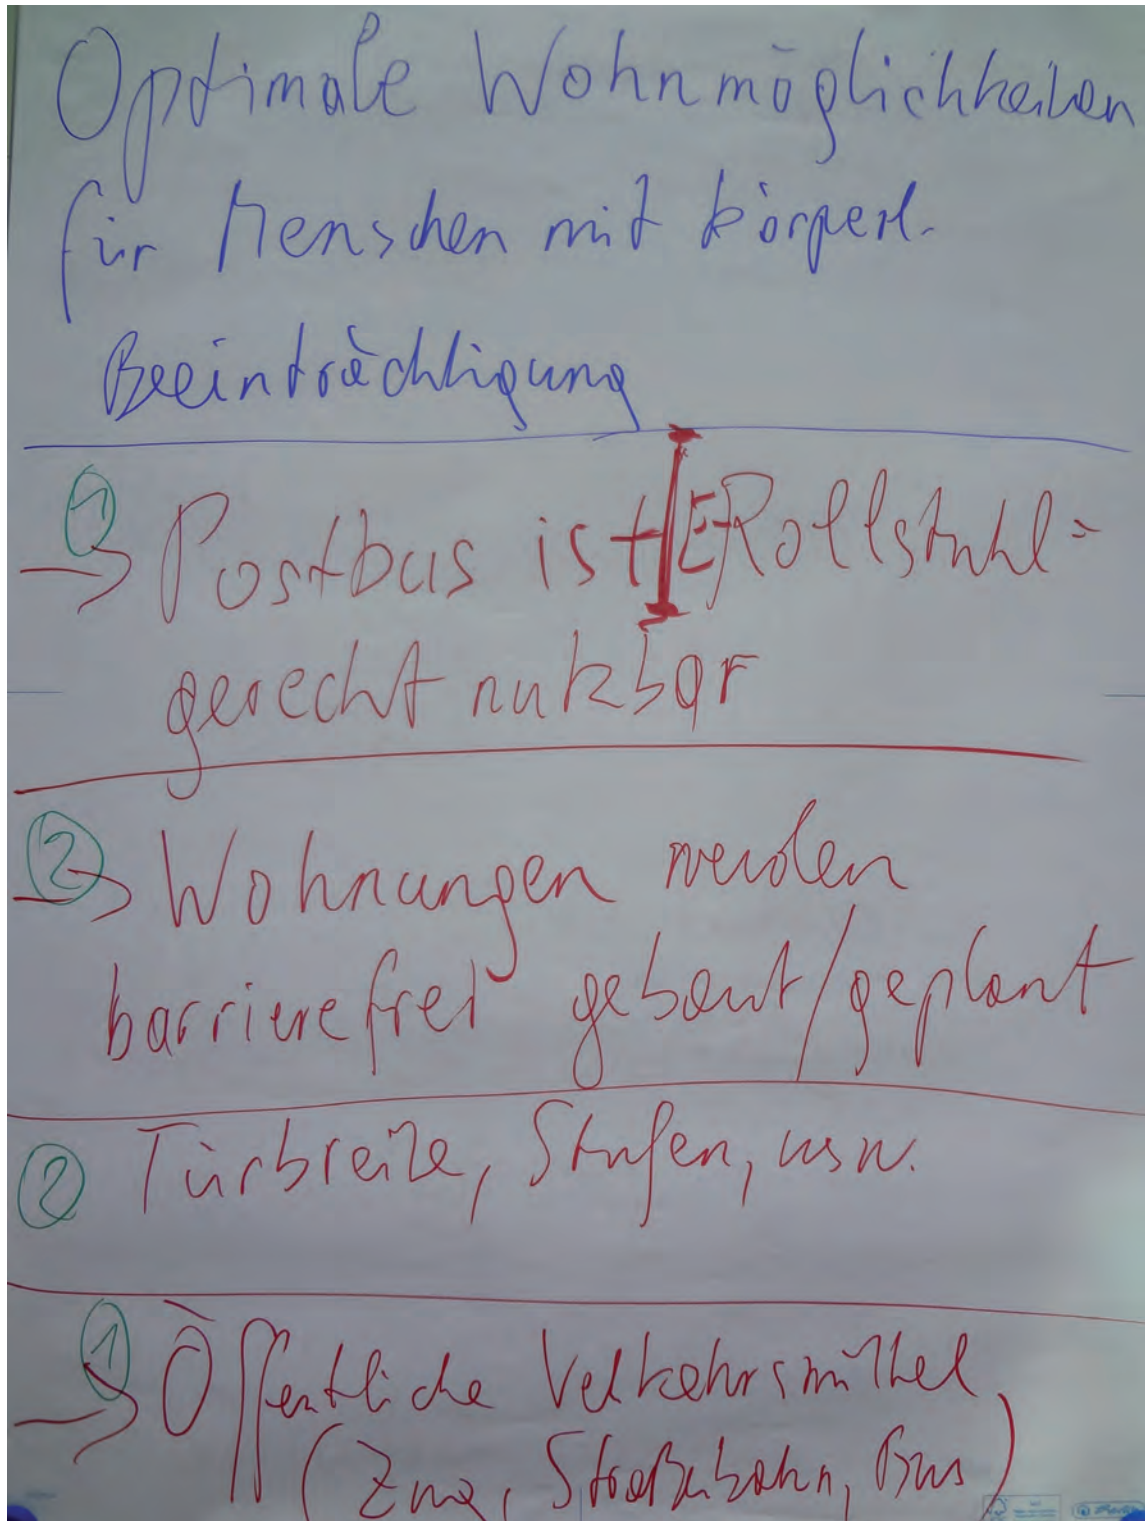 Optimale Wohnmöglichkeiten
für Menschen mit körperl.
Beeinträchtigung
① → Postbus ist E Rollstuhl=
gerecht nutzbar
② → Wohnungen werden
barrierefrei gebaut/geplant
② Türbreite, Stufen, usw.
① → Öffentliche Verkehrsmittel
(Zug, Straßenbahn, Bus)